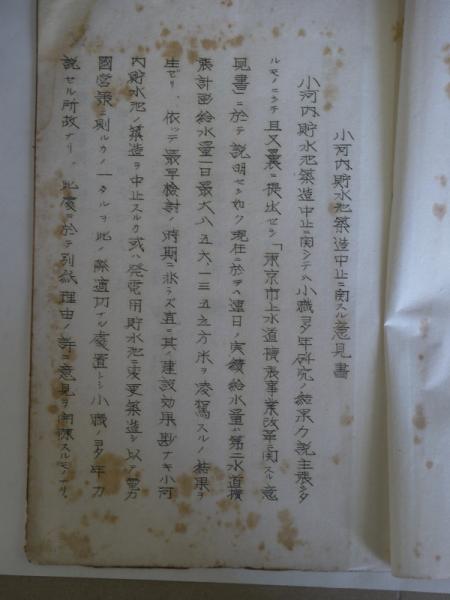 小河内貯水池築造中止ニ関スル意見書
小河内貯水池築造中止ニ関シテハ小職ヨク年研究ノ結果力説主張シタ
ルモノニシテ且又曩ニ提出セシ「東京市上水道拡張事業改革ニ関スル意
見書」ニ於テ説明セシ如ク現在ニ於テハ連日ノ実績給水量ハ第二水道拡
張計画給水量一日最大八五六、一三五立方米ヲ凌駕スルノ結果ヲ
生ゼリ、依ッテ最早検討ノ時期ニ非ラズ直ニ其ノ建設効果尠ナキ小河
内貯水池ノ築造ヲ中止スルカ或ハ発電用貯水池ニ変更築造シ以テ電力
国営策ニ則ルカノ一タルヲ此ノ際適切ナル処置トシ小職ノヨク年力
説セル所故ナリ、此處ニ於テ別紙理由ノ許ニ意見ヲ開陳スルモノナリ、